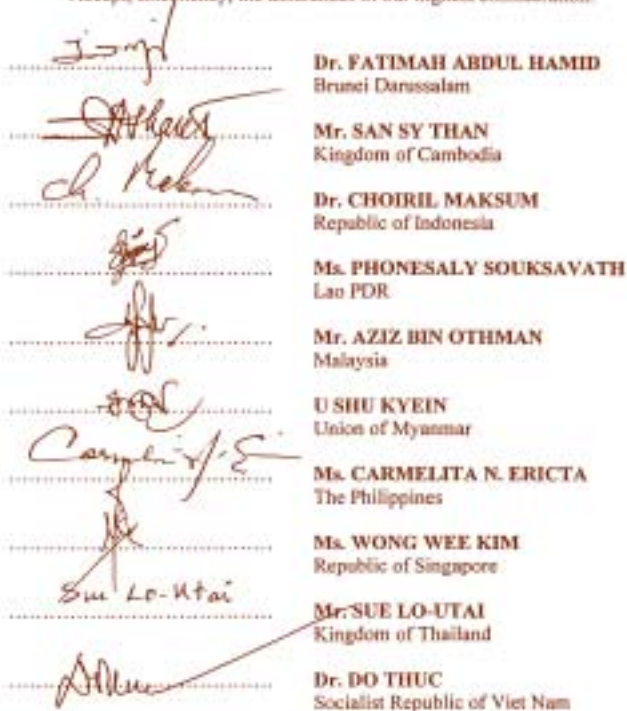 Dr. FATIMAH ABDUL HAMID
Brunei Darussalam
Mr. SAN SY THAN
Kingdom of Cambodia
Dr. CHOIRIL MAKSUM
Republic of Indonesia
Ms. PHONESALY SOUKSAVATH
Lao PDR
Mr. AZIZ BIN OTHMAN
Malaysia
U SHU KYEIN
Union of Myanmar
Ms. CARMELITA N. ERICTA
The Philippines
Ms. WONG WEE KIM
Republic of Singapore
Sue Lo-Utai
Mr. SUE LO-UTAI
Kingdom of Thailand
Dr. DO THUC
Socialist Republic of Viet Nam